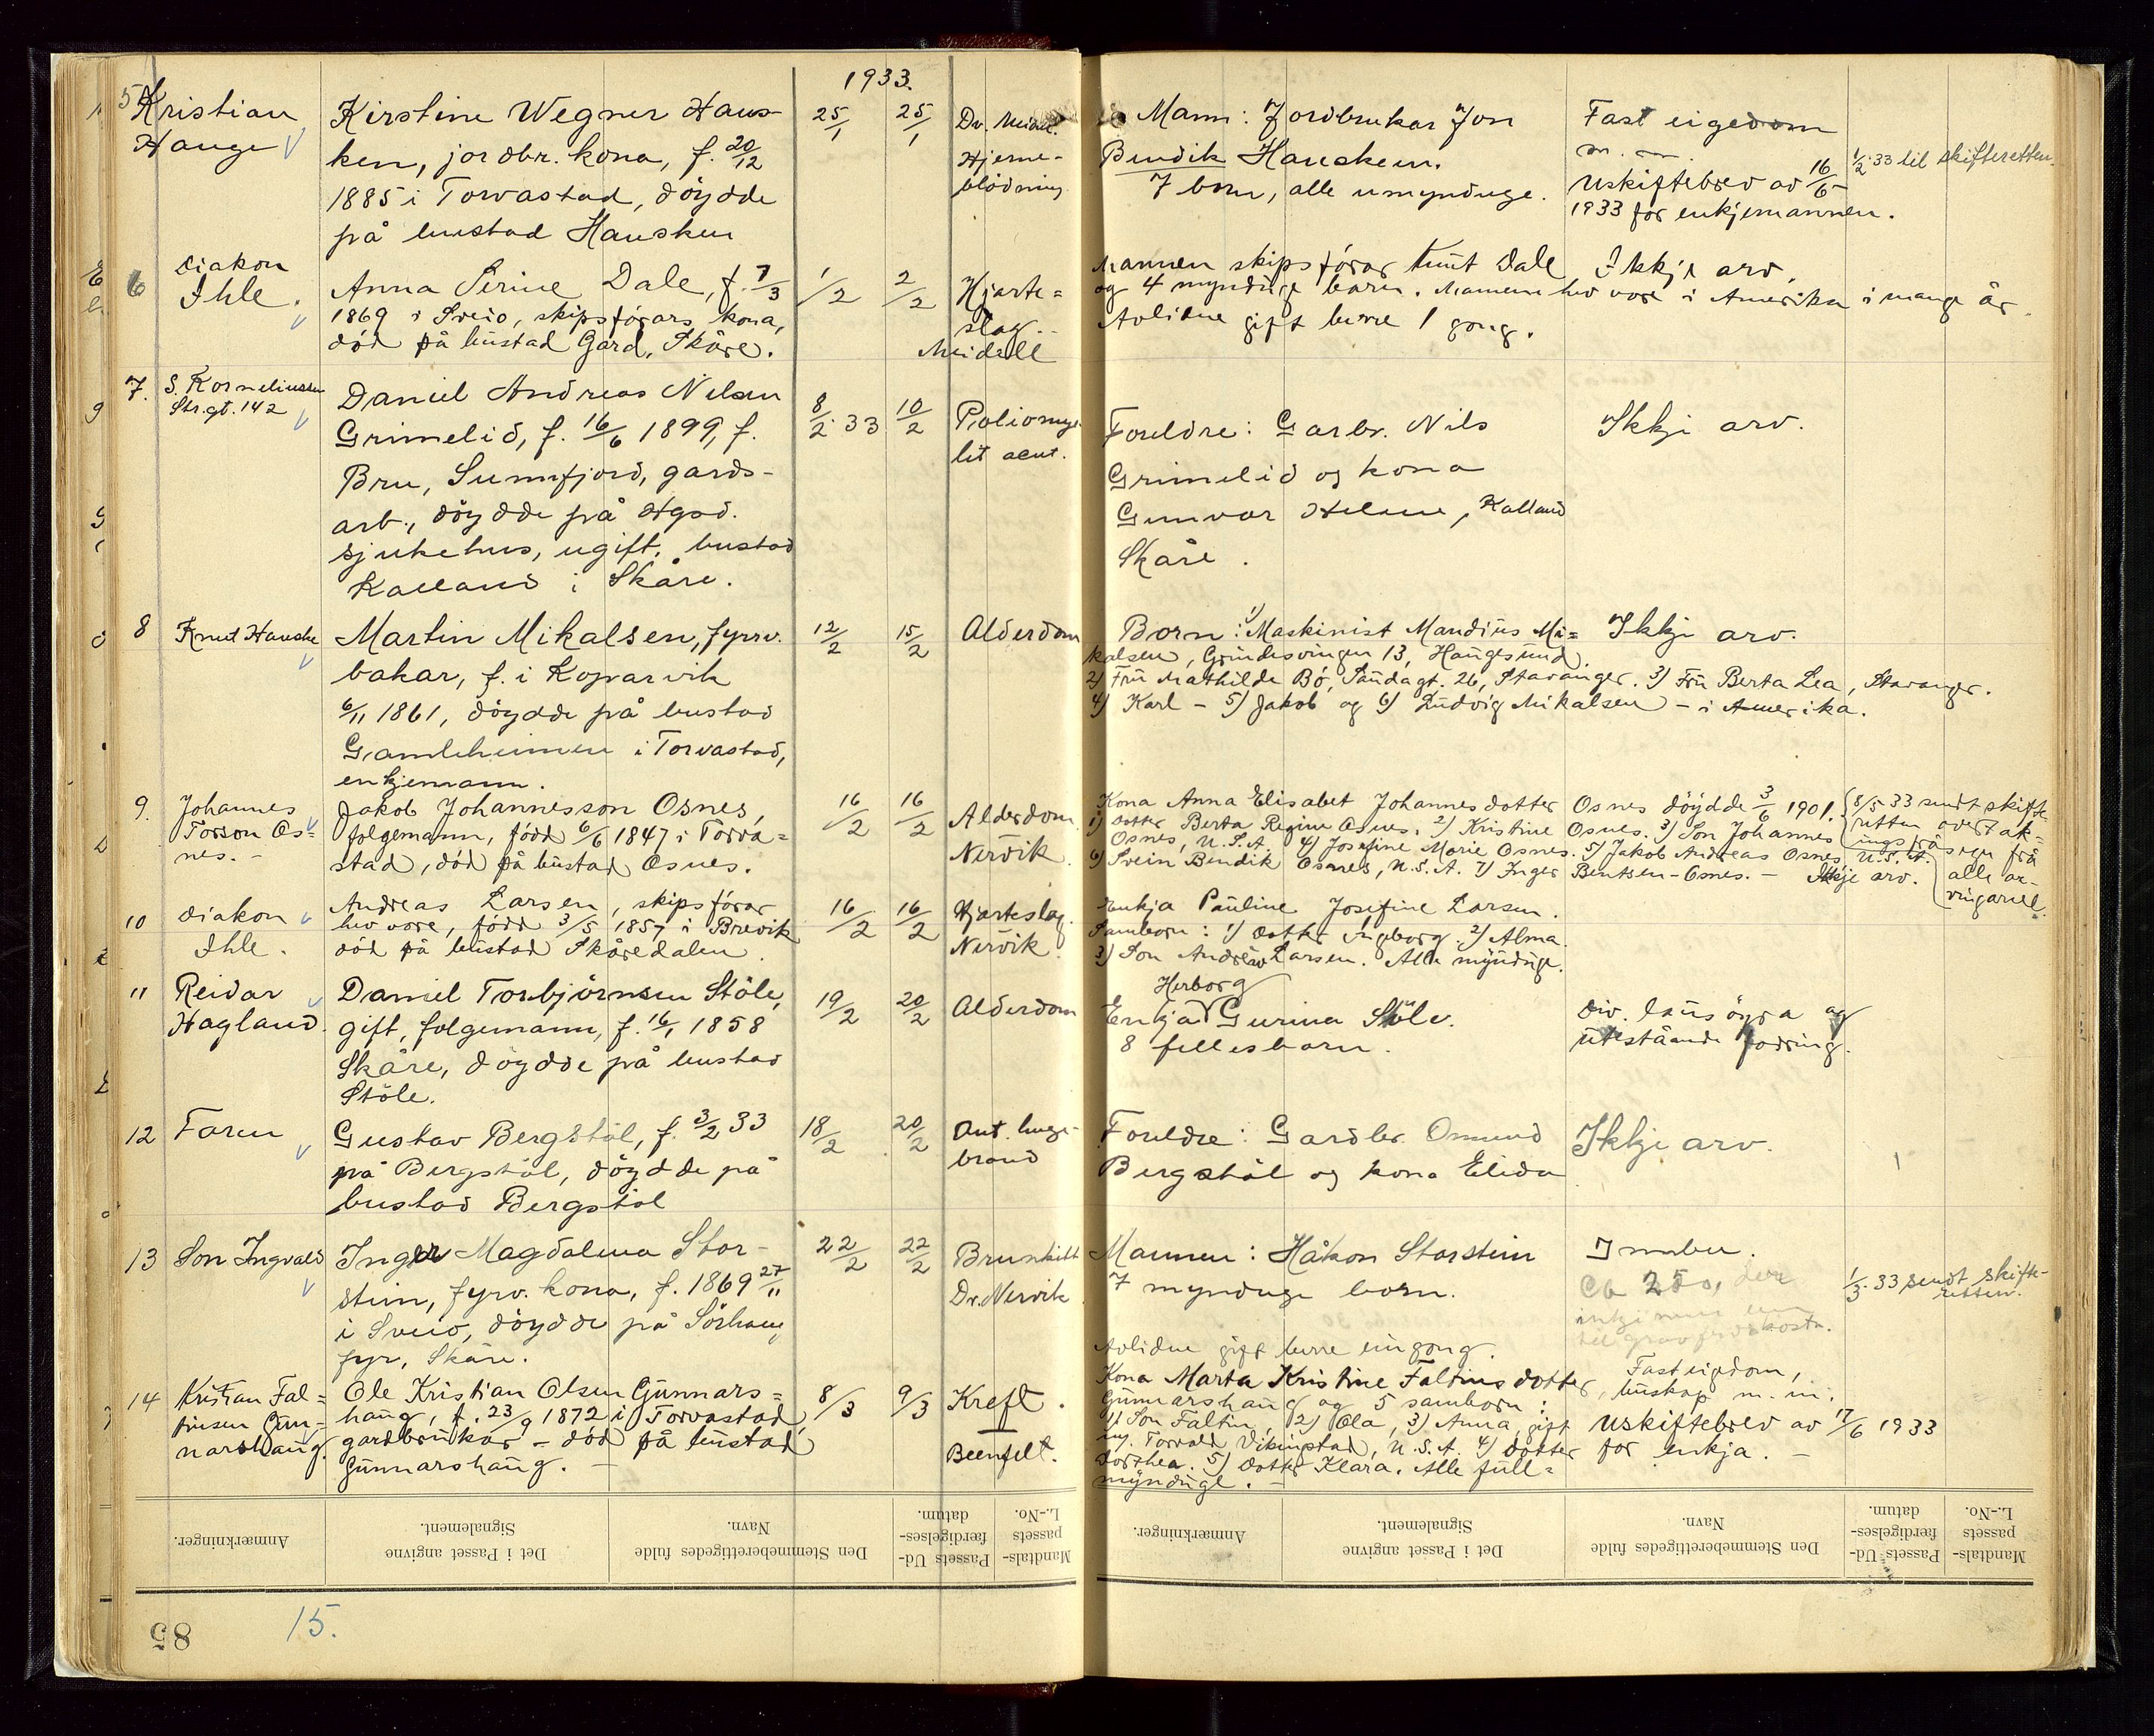 1933.
5 Kristian Hauge
Kirstine Wegner Haus-
ken, jordbr. kona, f. 20/12
1885 i Torvastad, döydde
på bustad Hausken
25/1 25/1
Dr. Meidell.
Hjerne-
blödning
Mann: Jordbrukar Jon
Bendik Hausken.
7 born, alle umynduge.
Fast eigedom
m. m.
Uskiftebrev av 16/6
1933 for enkjemannen.
1/2 33 til skifteretten.
6 Diakon
Ihle.
Anna Serine Dale, f. 7/3
1869 i Sveio, skipsförars kona,
död på bustad Gard, Skåre.
1/2 2/2
Hjarte=
slag.
Meidell
Mannen skipsförar Knut Dale
og 4 mynduge born. Mannen hev vore i Amerika i mange år.
Avlidne gift berre 1 gong.
Ikkje arv.
7. S. Korneliussen
Str.gt. 142
Daniel Andreas Nilsen
Grimelid, f. 16/6 1899, f.
Bru, Sunnfjord, gards-
arb., döydde på Hgsd.
sjukehus, ugift, bustad
Kalland i Skåre.
8/2 33 10/2
Poliomye-
lit acut.
Foreldre: Garbr. Nils
Grimelid og kona
Gunvor Helene, Kalland
Skåre.
Ikkje arv.
8 Knut Hauske
Martin Mikalsen, fyrrv.
bakar, f. i Kopervik
6/11 1861, döydde på bustad
Gamleheimen i Torvastad,
enkjemann.
12/2 15/2
Alderdom
Born: 1) Maskinist Mandius Mi=
kalsen, Grindesvingen 13, Haugesund.
2) Fru Mathilde Bö, Sandagt. 26, Stavanger. 3) Fru Berta Lea, Stavanger.
4) Karl - 5) Jakob og 6) Ludvig Mikalsen - i Amerika.
Ikkje arv.
9. Johannes
Torson Os=
nes. -
Jakob Johannesson Osnes,
folgemann, född 6/6 1847 i Torva=
stad, död på bustad Osnes.
16/2 16/2
Alderdom
Nervik.
Kona Anna Elisabet Johannesdotter Osnes döydde 3/6 1901.
1) Dotter Berta Regine Osnes. 2) Kristine Osnes. 3) Son Johannes
Osnes, U.S.A. 4) Josefine Marie Osnes. 5) Jakob Andreas Osnes, U.S.A.
6) Svein Bendik Osnes, U.S.A. 7) Inger Bentsen-Osnes. - Ikkje arv.
8/5 33 sendt skift-
retten overtak-
ingsfråsegn frå
alle ar-
vingane.
10 Diakon
Ihle.
Andreas Larsen, skipsförar
hev vore, född 3/5 1857 i Brevik
död på bustad Skåredalen.
16/2 16/2
Hjarteslag.
Nervik.
Enkja Pauline Josefine Larsen.
Samborn: 1) Dotter Ingeborg. 2) Alma.
3) Son Andrew Larsen. Alle mynduge.
11 Reidar
Hagland.
Daniel Torbjörnsen Stöle,
gift, folgemann, f. 16/1 1858
Skåre, döydde på bustad
Stöle.
19/2 20/2
Alderdom
Herborg
Enkja Gurina Stöle.
8 fellesborn.
Div. lausöyra og
utestående fodring.
12 Faren
Gustav Bergstöl, f. 3/2 33
på Bergstöl, döydde på
bustad Bergstöl
18/2 20/2
Ant. lunge-
brand
Foreldre: Gardbr. Omund
Bergstöl og kona Elida
Ikkje arv.
13 Son Ingvald
Inger Magdalena Stor-
stein, fyrv. kona, f. 1869 27/11
i Sveio, döydde på Sörhaug
fyr, Skåre.
22/2 22/2
Brunkitt
Dr. Nervik
Mannen: Håkon Storstein
7 mynduge born.
Avlidne gift berre ein gong.
Innbu.
Ca 250, der
inkje meir enn
til gravferdskostn.
1/3 33 sendt skift-
retten.
14 Kristian Fal=
tinsen Gun-
narshaug.
Ole Kristian Olsen Gunnars=
haug, f. 23/9 1872 i Torvastad,
gardbrukar - död på bustad
Gunnarshaug. -
8/3 9/3
Kreft.
Beenfelt.
Kona Marta Kristine Faltinsdotter,
Gunnarshaug og 5 samborn:
1) Son Faltin, 2) Ola, 3) Anna, gift
m. Torvald Vikingstad, U.S.A. 4) Dotter
Dorthea. 5) Dotter Klara. Alle full=
mynduge. -
Fast eigdom,
buskap m. m.
Uskiftebrev av 17/6 1933
for enkja. -
Anmærkninger.
Det i Passet angivne
Signalement.
Den Stemmeberettigedes fulde
Navn.
Passets Ud-
færdigelses-
datum.
Mandtals-
passets
L.-No.
Anmærkninger.
Det i Passet angivne
Signalement.
Den Stemmeberettigedes fulde
Navn.
Passets Ud-
færdigelses-
datum.
Mandtals-
passets
L.-No.
85
15.